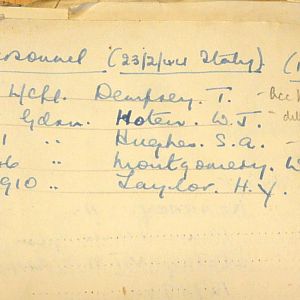 rsonnel (23/2/44 Italy) (1
L/Cpl. Dempsey. T. -
Gdsn. Hoten. W.J.
1 " Hughes. S.A. -
46 " Montgomery. W
910 " Taylor. H.Y. -